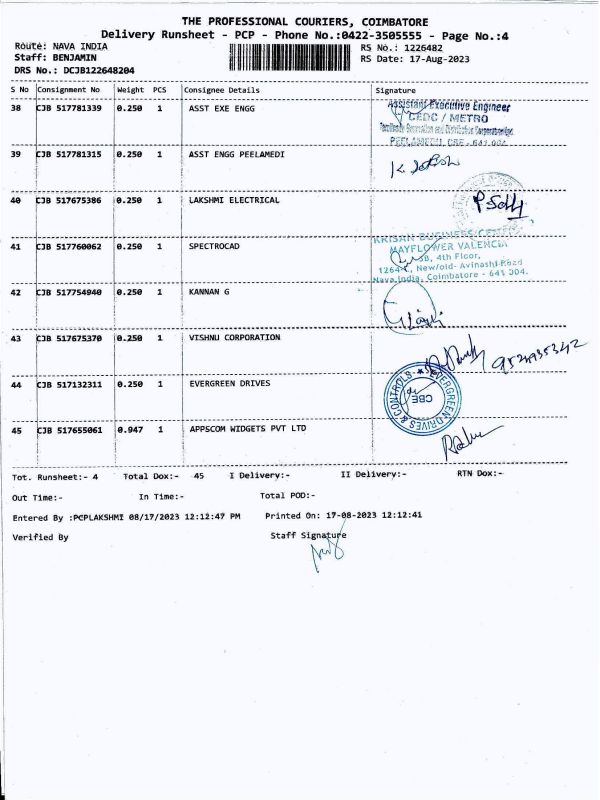 THE PROFESSIONAL COURIERS, COIMBATORE
Delivery Runsheet - PCP - Phone No.:0422-3505555 - Page No.:4
Route: NAVA INDIA RS No.: 1226482
Staff: BENJAMIN RS Date: 17-Aug-2023
DRS No.: DCJB122648204
S No Consignment No Weight PCS Consignee Details Signature
38 CJB 517781339 0.250 1 ASST EXE ENGG
Assistant Executive Engineer
CEDC / METRO
PEELAMEDU, CBE - 641 004.
39 CJB 517781315 0.250 1 ASST ENGG PEELAMEDI
40 CJB 517675386 0.250 1 LAKSHMI ELECTRICAL
41 CJB 517760062 0.250 1 SPECTROCAD
KRISAN BUSINESS CENTRE
MAYFLOWER VALENCIA
4th Floor,
New/old- Avinashi Road
Nava India, Coimbatore - 641 004.
42 CJB 517754940 0.250 1 KANNAN G
43 CJB 517675370 0.250 1 VISHNU CORPORATION
44 CJB 517132311 0.250 1 EVERGREEN DRIVES
EVERGREEN DRIVES & CONTROLS
CBE
45 CJB 517655061 0.947 1 APPSCOM WIDGETS PVT LTD
Tot. Runsheet:- 4 Total Dox:- 45 I Delivery:- II Delivery:- RTN Dox:-
Out Time:- In Time:- Total POD:-
Entered By :PCPLAKSHMI 08/17/2023 12:12:47 PM Printed On: 17-08-2023 12:12:41
Verified By Staff Signature